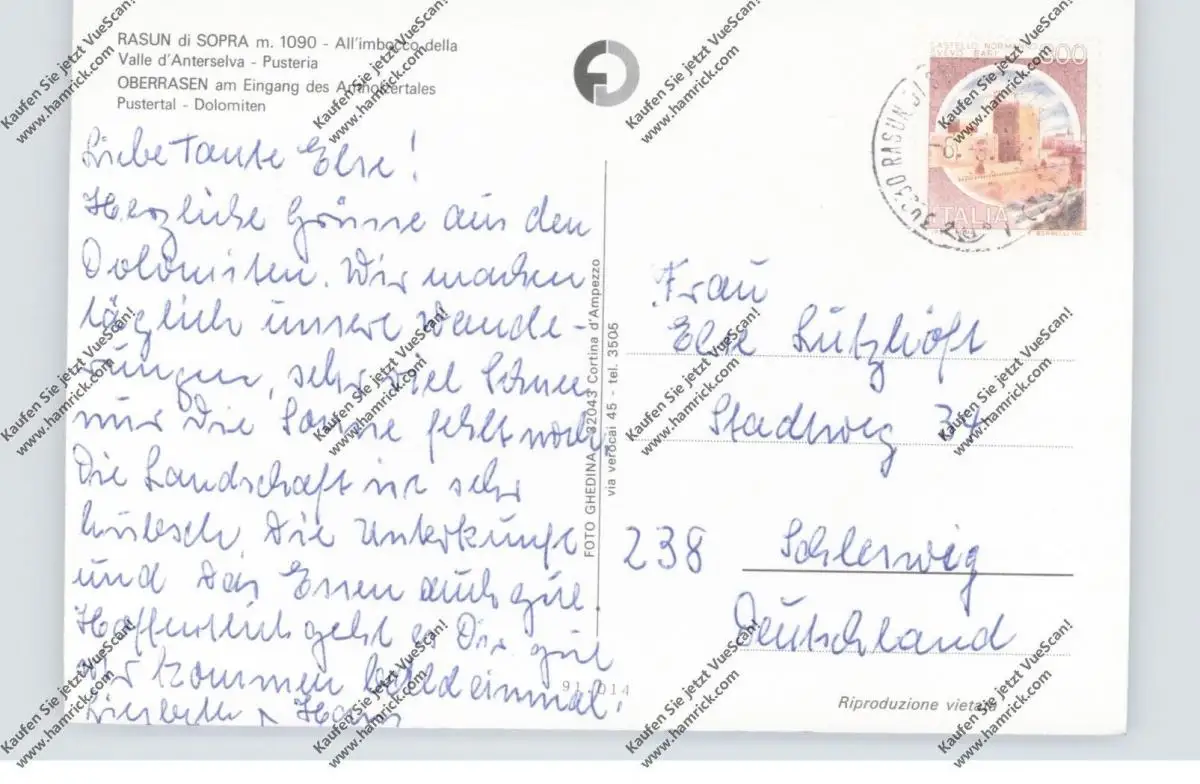 RASUN di SOPRA m. 1090 - All'imbocco della
Valle d'Anterselva - Pusteria
OBERRASEN am Eingang des Antholzertales
Pustertal - Dolomiten
CASTELLO NORMANNO
SVEVO BARI
ITALIA
Liebe Tante Else!
Herzliche Grüsse aus den
Dolomiten. Wir machen
täglich unsere Wande-
rungen, sehr viel Schnee
nur die Sonne fehlt noch.
Die Landschaft ist sehr
hübsch. Die Unterkunft
und das Essen auch gut
Hoffentlich geht es Dir gut
Wir kommen bald einmal!
Liesbeth + Hans
FOTO GHEDINA - 32043 Cortina d'Ampezzo
via verocai 45 - tel. 3505
Frau
Else Lützhöft
Stadtweg 34
238 Schleswig
Deutschland
91 014
Riproduzione vietata
Kaufen Sie jetzt VueScan!
www.hamrick.com!